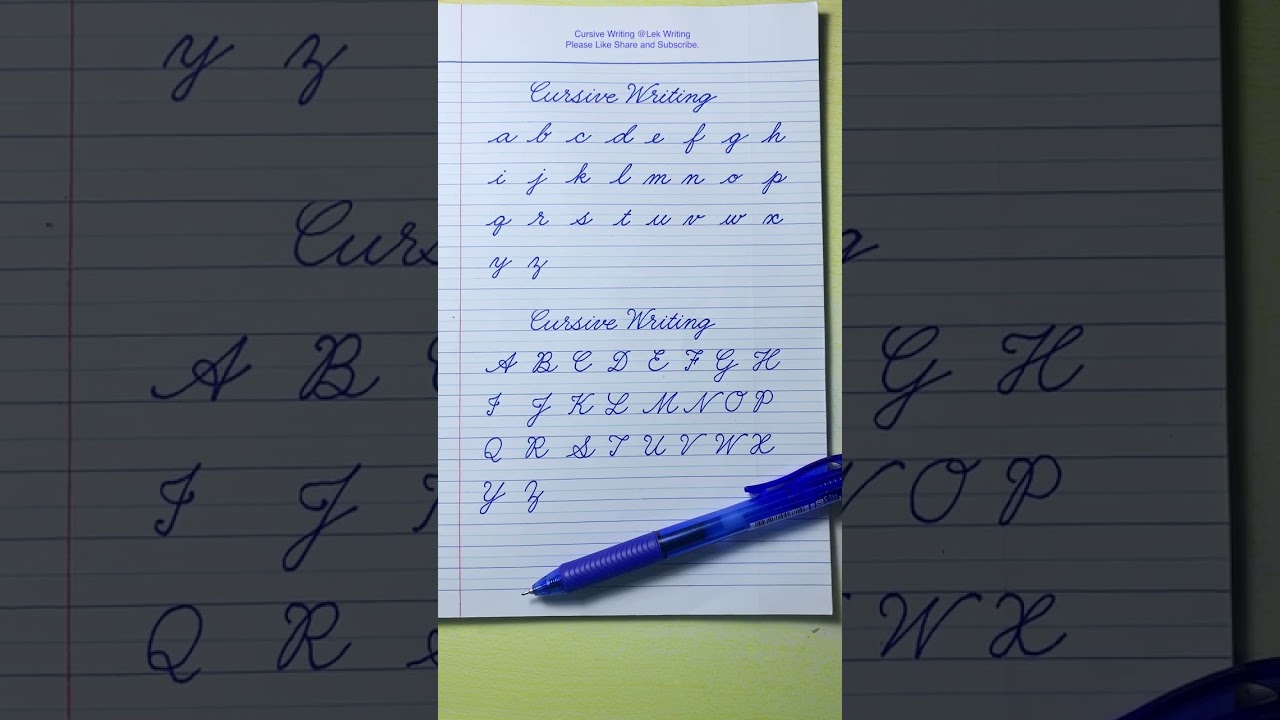 Cursive Writing @Lek Writing
Please Like Share and Subscribe.
Cursive Writing
a b c d e f g h
i j k l m n o p
q r s t u v w x
y z
Cursive Writing
A B C D E F G H
I J K L M N O P
Q R S T U V W X
Y Z